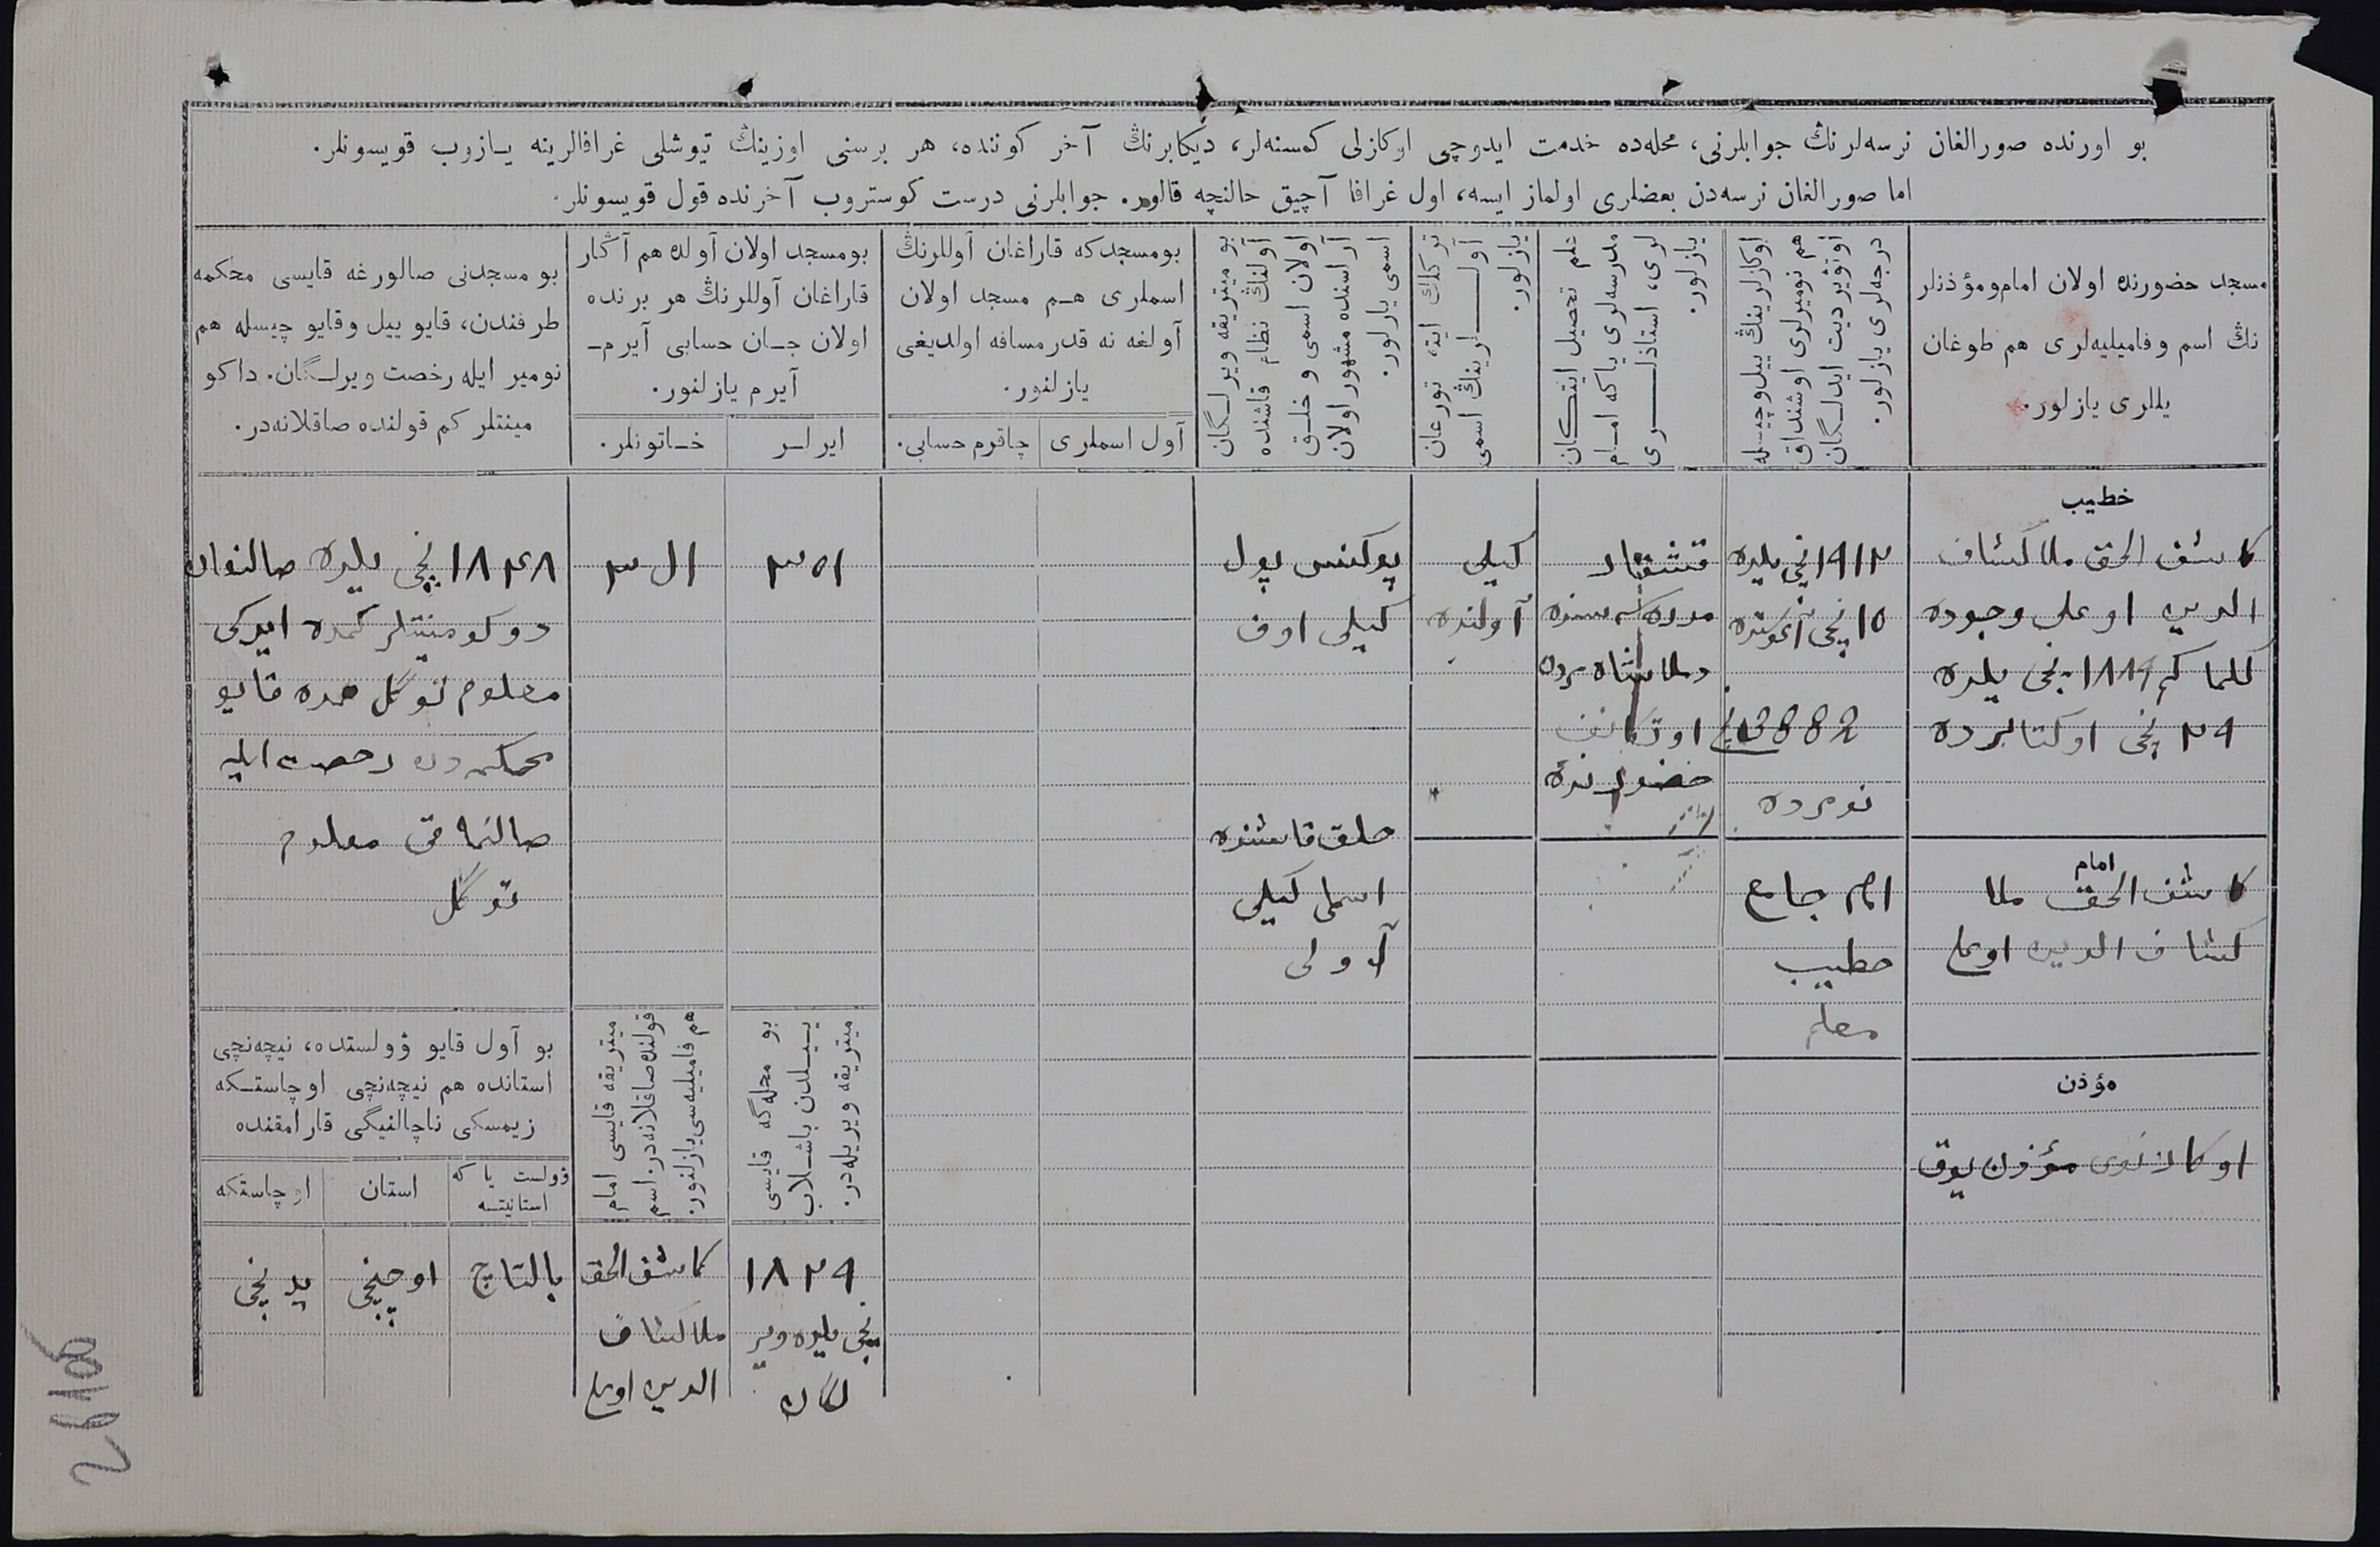 بو اورنده صورالغان نرسه‌لرنڭ جوابلرنی، محله‌ده خدمت ایدوچی اوکازلی کمسنه‌لر، دیکابرنڭ آخر کوننده، هر برسنی اوزینڭ تیوشلی غرافالرینه یازوب قویسونلر.
اما صورالغان نرسه‌دن بعضلری اولماز ایسه، اول غرافا آچیق حالنچه قالور. جوابلرنی درست کوستروب آخرنده قول قویسونلر.
مسجد حضورنده اولان امام ومؤذنلر
نڭ اسم وفامیلیه‌لری هم طوغان
یللری یازلور.
اوکازلرینڭ ییل وچیسله
هم نومیرلری اوشنداق
اوتۋیردیت ایدلگان
درجه‌لری یازلور.
علم تحصیل ایتکان
مدرسه‌لری یاکه امام
لری، استاذلری
یازلور.
ترکلك ایته تورغان
آوللرینڭ اسمی
یازلور.
بو میتریقه ویرلگان
آولنڭ نظام قاشنده
اولان اسمی و خلق
آراسنده مشهور اولان
اسمی یازلور.
بومسجدکه قاراغان آوللرنڭ
اسملری هم مسجد اولان
آولغه نه قدر مسافه اولدیغی
یازلنور.
آول اسملری
چاقرم حسابی.
بومسجد اولان آولده هم آڭار
قاراغان آوللرنڭ هر برنده
اولان جان حسابی آیرم
آیرم یازلنور.
ایرلر
خاتونلر.
بو مسجدنی صالورغه قایسی محکمه
طرفندن، قایو ییل وقایو چیسله هم
نومیر ایله رخصت ویرلگان. داکو
مینتلر کم قولنده صاقلانه‌در.
خطیب
کاشف الحق ملا کشاف
الدین اوغلی وجوده
کلما کم ١٨٨٩ نجی یلده
٢٩ نجی اوکتابرده
١٩١٢ نجی یلده
١٥ نجی آغوستده
2882 نجی
نومرده
قشقار
مدرسه سنده
حضورنده
کیلی
آولنده
پوکنس پول
کیلی اوف
خلق قاشنده
اسملی کیلی
آولی
٣٥١
٣١١
١٨٤٨ نجی یلده صالنغان
دوکومینتلر کمده ایدکی
معلوم توگل همده قایو
محکمه‌دن رخصت ایله
صالنماقی معلوم
توگل
امام
کاشف الحق ملا
کشاف الدین اوغلی
امام جامع
خطیب
معلم
مؤذن
اوکازنوی مؤذن یوق
بو محله‌گه قایسی
ییلدن باشلاب
میتریقه ویریله‌در.
میتریقه قایسی امام
قولنده صاقلانه‌در. اسم
هم فامیلیه‌سی یازلنور.
بو آول قایو ۋولستده، نیچه‌نچی
استانده هم نیچه‌نچی اوچاستکه
زیمسکی ناچالنیگی قارامقنده
ۋولست یا که
استانیتسه
استان
اوچاستکه
١٨٢٩
نجی یلده ویر
لگان
کاشف الحق
ملا کشاف
الدین اوغلی
بالتاچ
اوچنجی
یدنجی